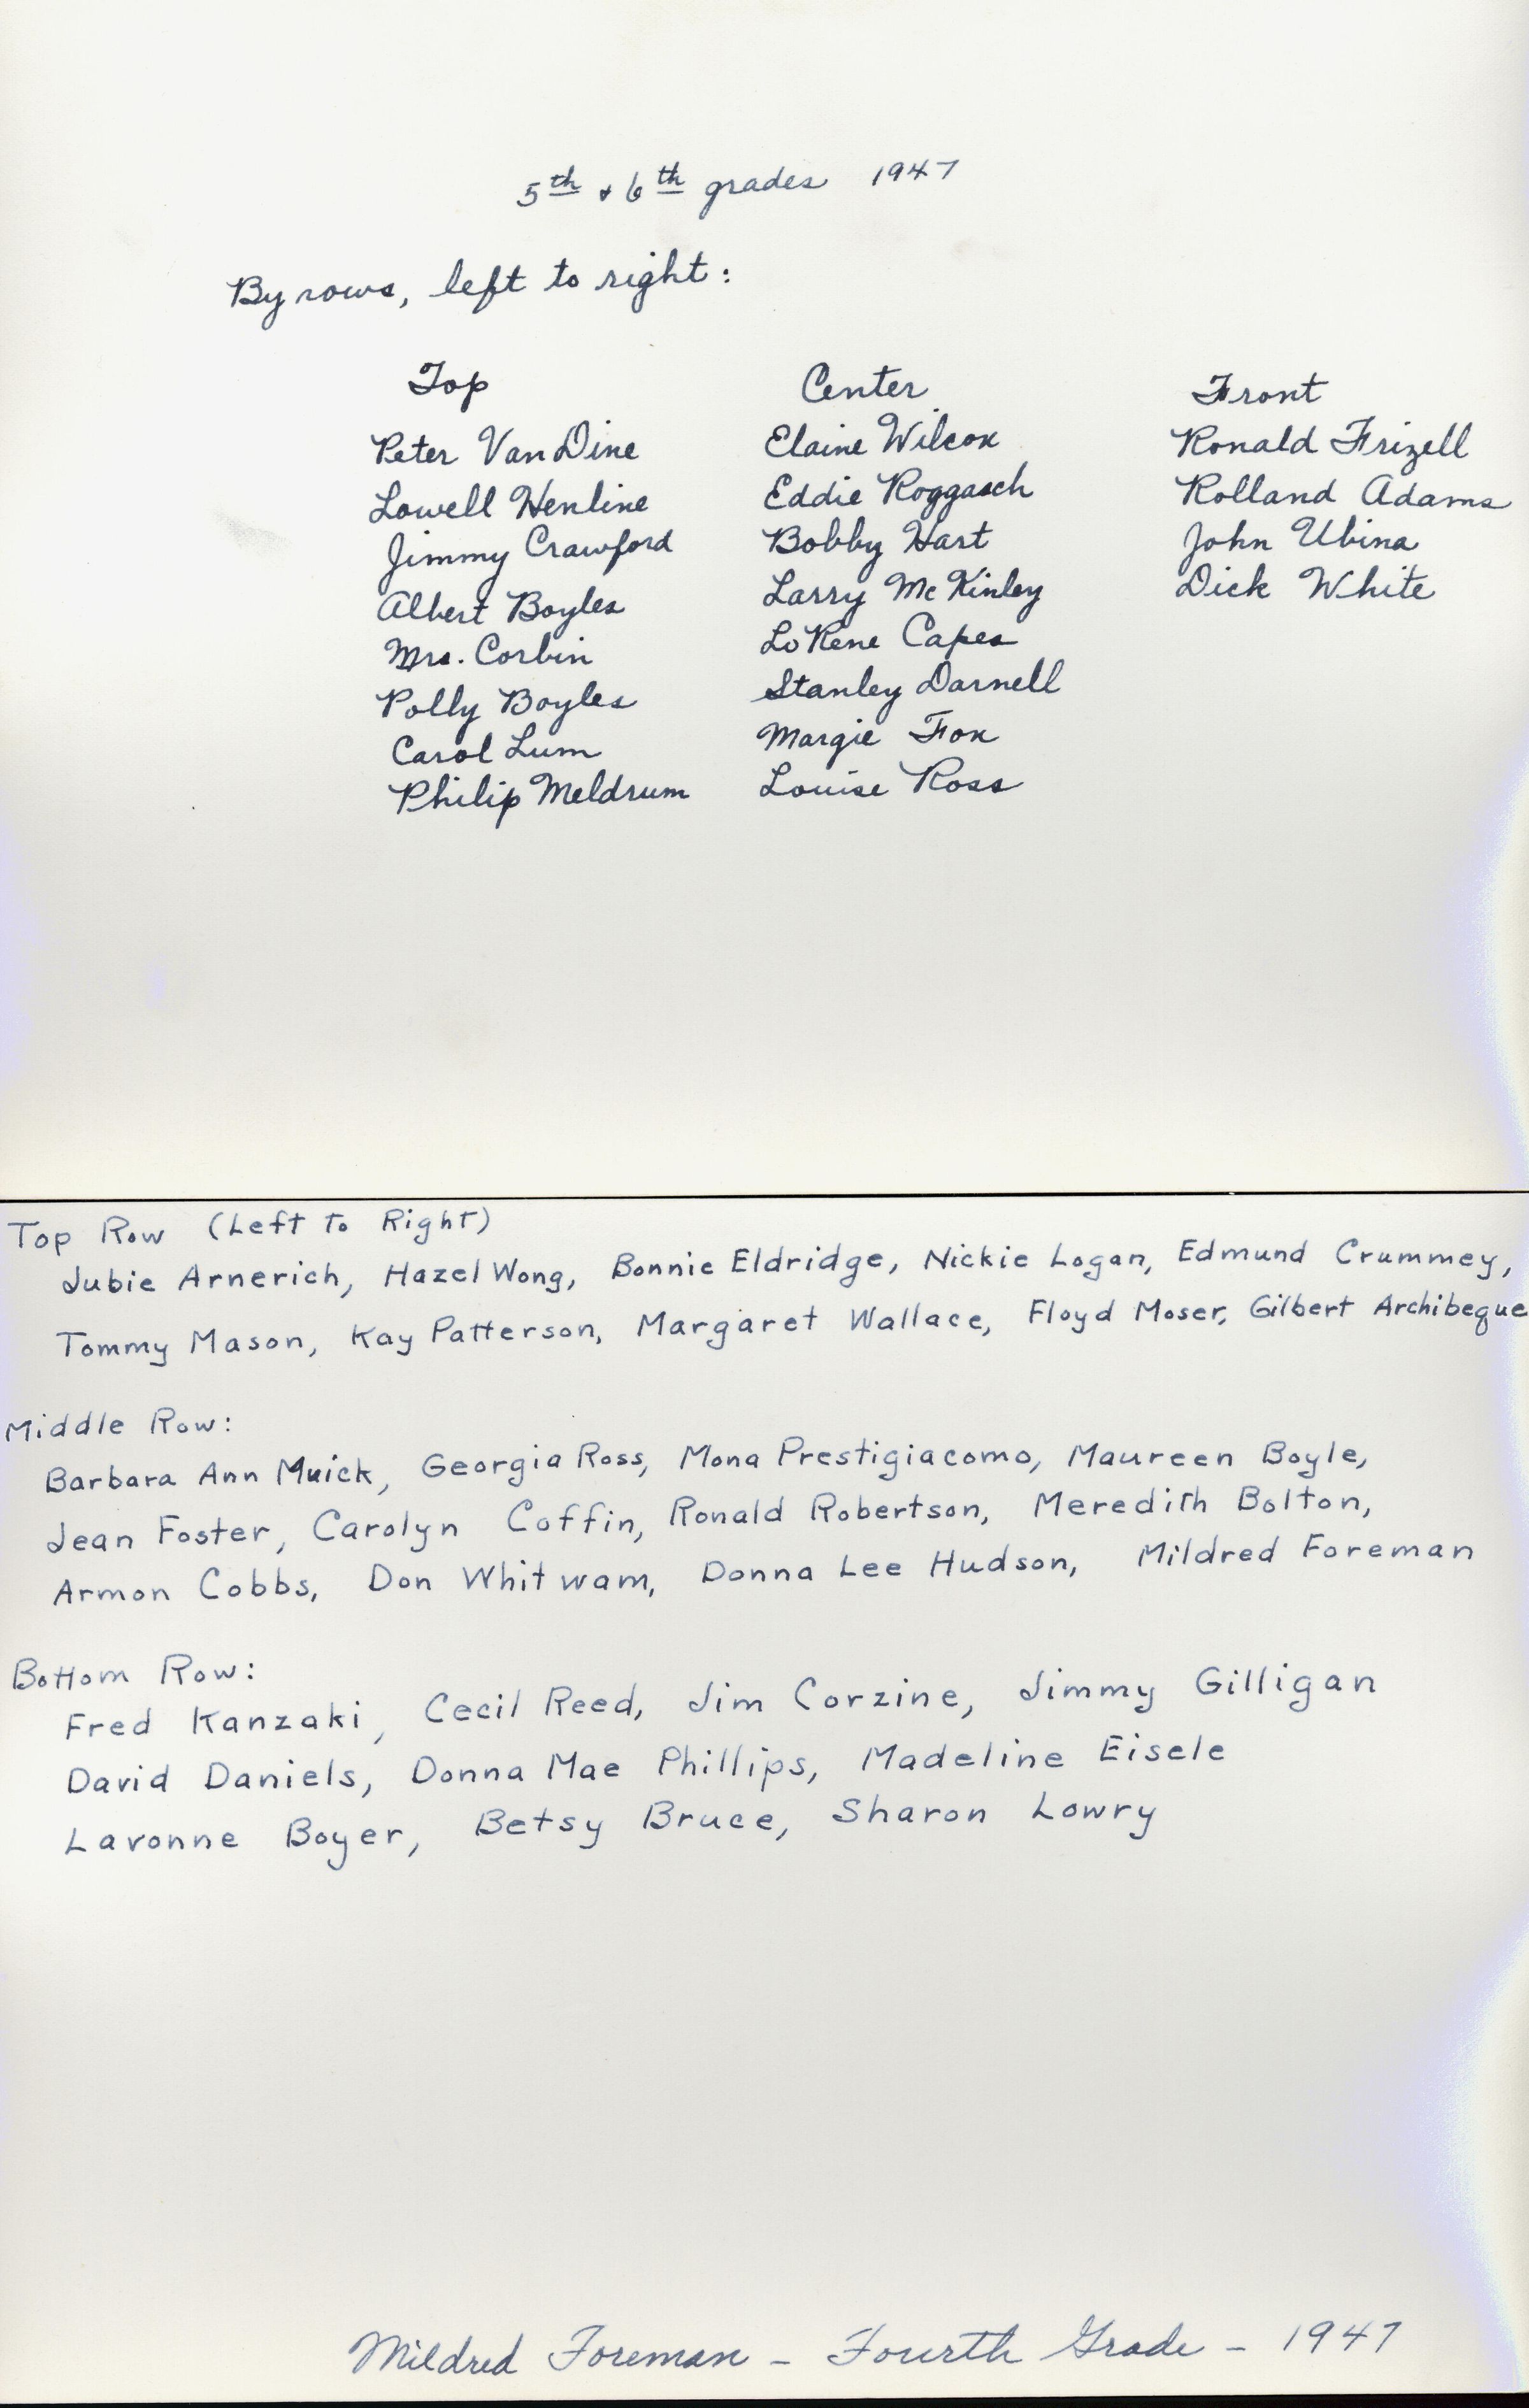 5th & 6th grades 1947
By rows, left to right:
Top
Peter Van Dine
Lowell Henline
Jimmy Crawford
Albert Boyles
Mrs. Corbin
Polly Boyles
Carol Lum
Philip Meldrum
Center
Elaine Wilcox
Eddie Roggasch
Bobby Hart
Larry McKinley
LoRene Capes
Stanley Darnell
Margie Fox
Louise Ross
Front
Ronald Frizell
Rolland Adams
John Ubina
Dick White
Top Row (Left to Right)
Jubie Arnerich, Hazel Wong, Bonnie Eldridge, Nickie Logan, Edmund Crummey,
Tommy Mason, Kay Patterson, Margaret Wallace, Floyd Moser, Gilbert Archibeque
Middle Row:
Barbara Ann Muick, Georgia Ross, Mona Prestigiacomo, Maureen Boyle,
Jean Foster, Carolyn Coffin, Ronald Robertson, Meredith Bolton,
Armon Cobbs, Don Whitwam, Donna Lee Hudson, Mildred Foreman
Bottom Row:
Fred Kanzaki, Cecil Reed, Jim Corzine, Jimmy Gilligan
David Daniels, Donna Mae Phillips, Madeline Eisele
Lavonne Boyer, Betsy Bruce, Sharon Lowry
Mildred Foreman - Fourth Grade - 1947